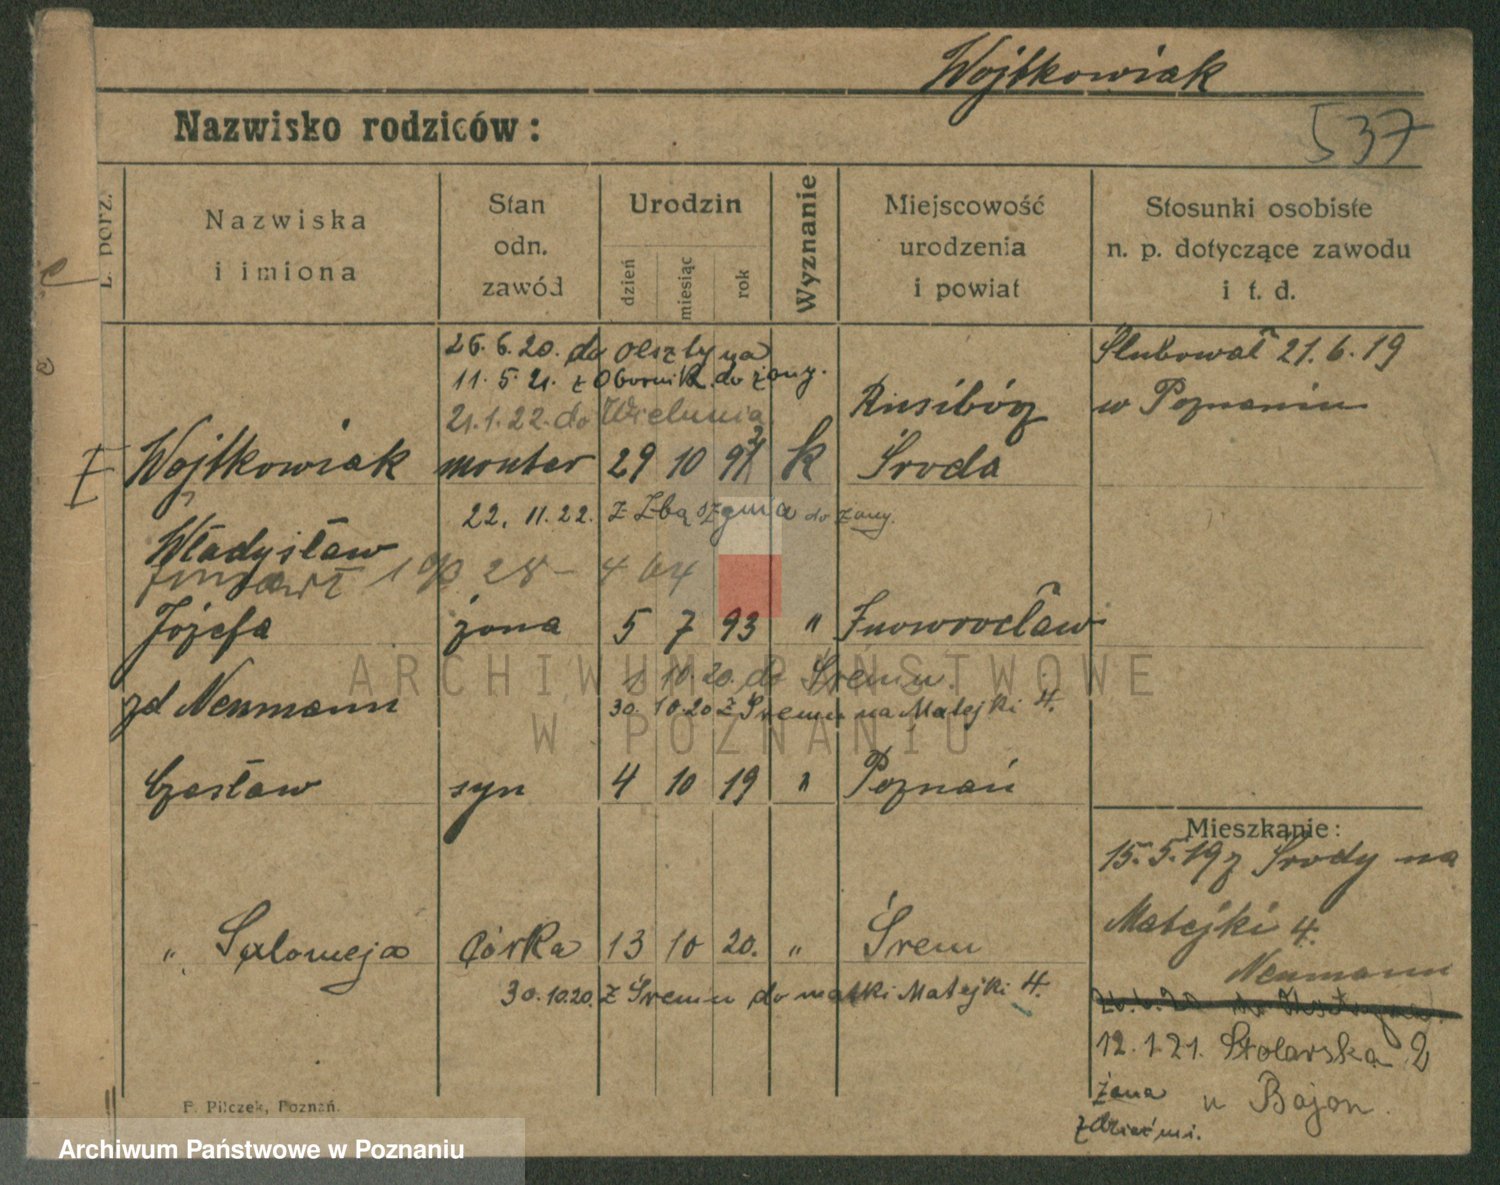 Wojtkowiak
Nazwisko rodziców:
537
L. porz.
Nazwiska
i imiona
Stan
odn.
zawód
Urodzin
dzień
miesiąc
rok
Wyznanie
Miejscowość
urodzenia
i powiat
Stosunki osobiste
n. p. dotyczące zawodu
i t. d.
26. 6. 20. do Olsztyna
11. 5. 21. z Obornik do żony.
21. 1. 22. do Wielunia
Ślubował 21. 6. 19
w Poznaniu
Wojtkowiak monter 29 10 k Środa
22. 11. 22. z Zbąszynia do żony.
Władysław
Józefa żona 5 7 93 " Inowrocław
1 10. 20. do Śremu.
zd Neumann
30. 10. 20 z Śremu na Matejki 4.
Czesław syn 4 10 19 " Poznań
Mieszkanie:
15. 5. 19 z Środy na
Matejki 4.
Neumann
" Salomeja córka 13 10 20. " Śrem
30. 10. 20. z Śremu do matki Matejki 4.
12. 1. 21. Stolarska 2
żona u Bajon.
z dziećmi.
F. Pilczek, Poznań.
ARCHIWUM PAŃSTWOWE
W POZNANIU
Archiwum Państwowe w Poznaniu